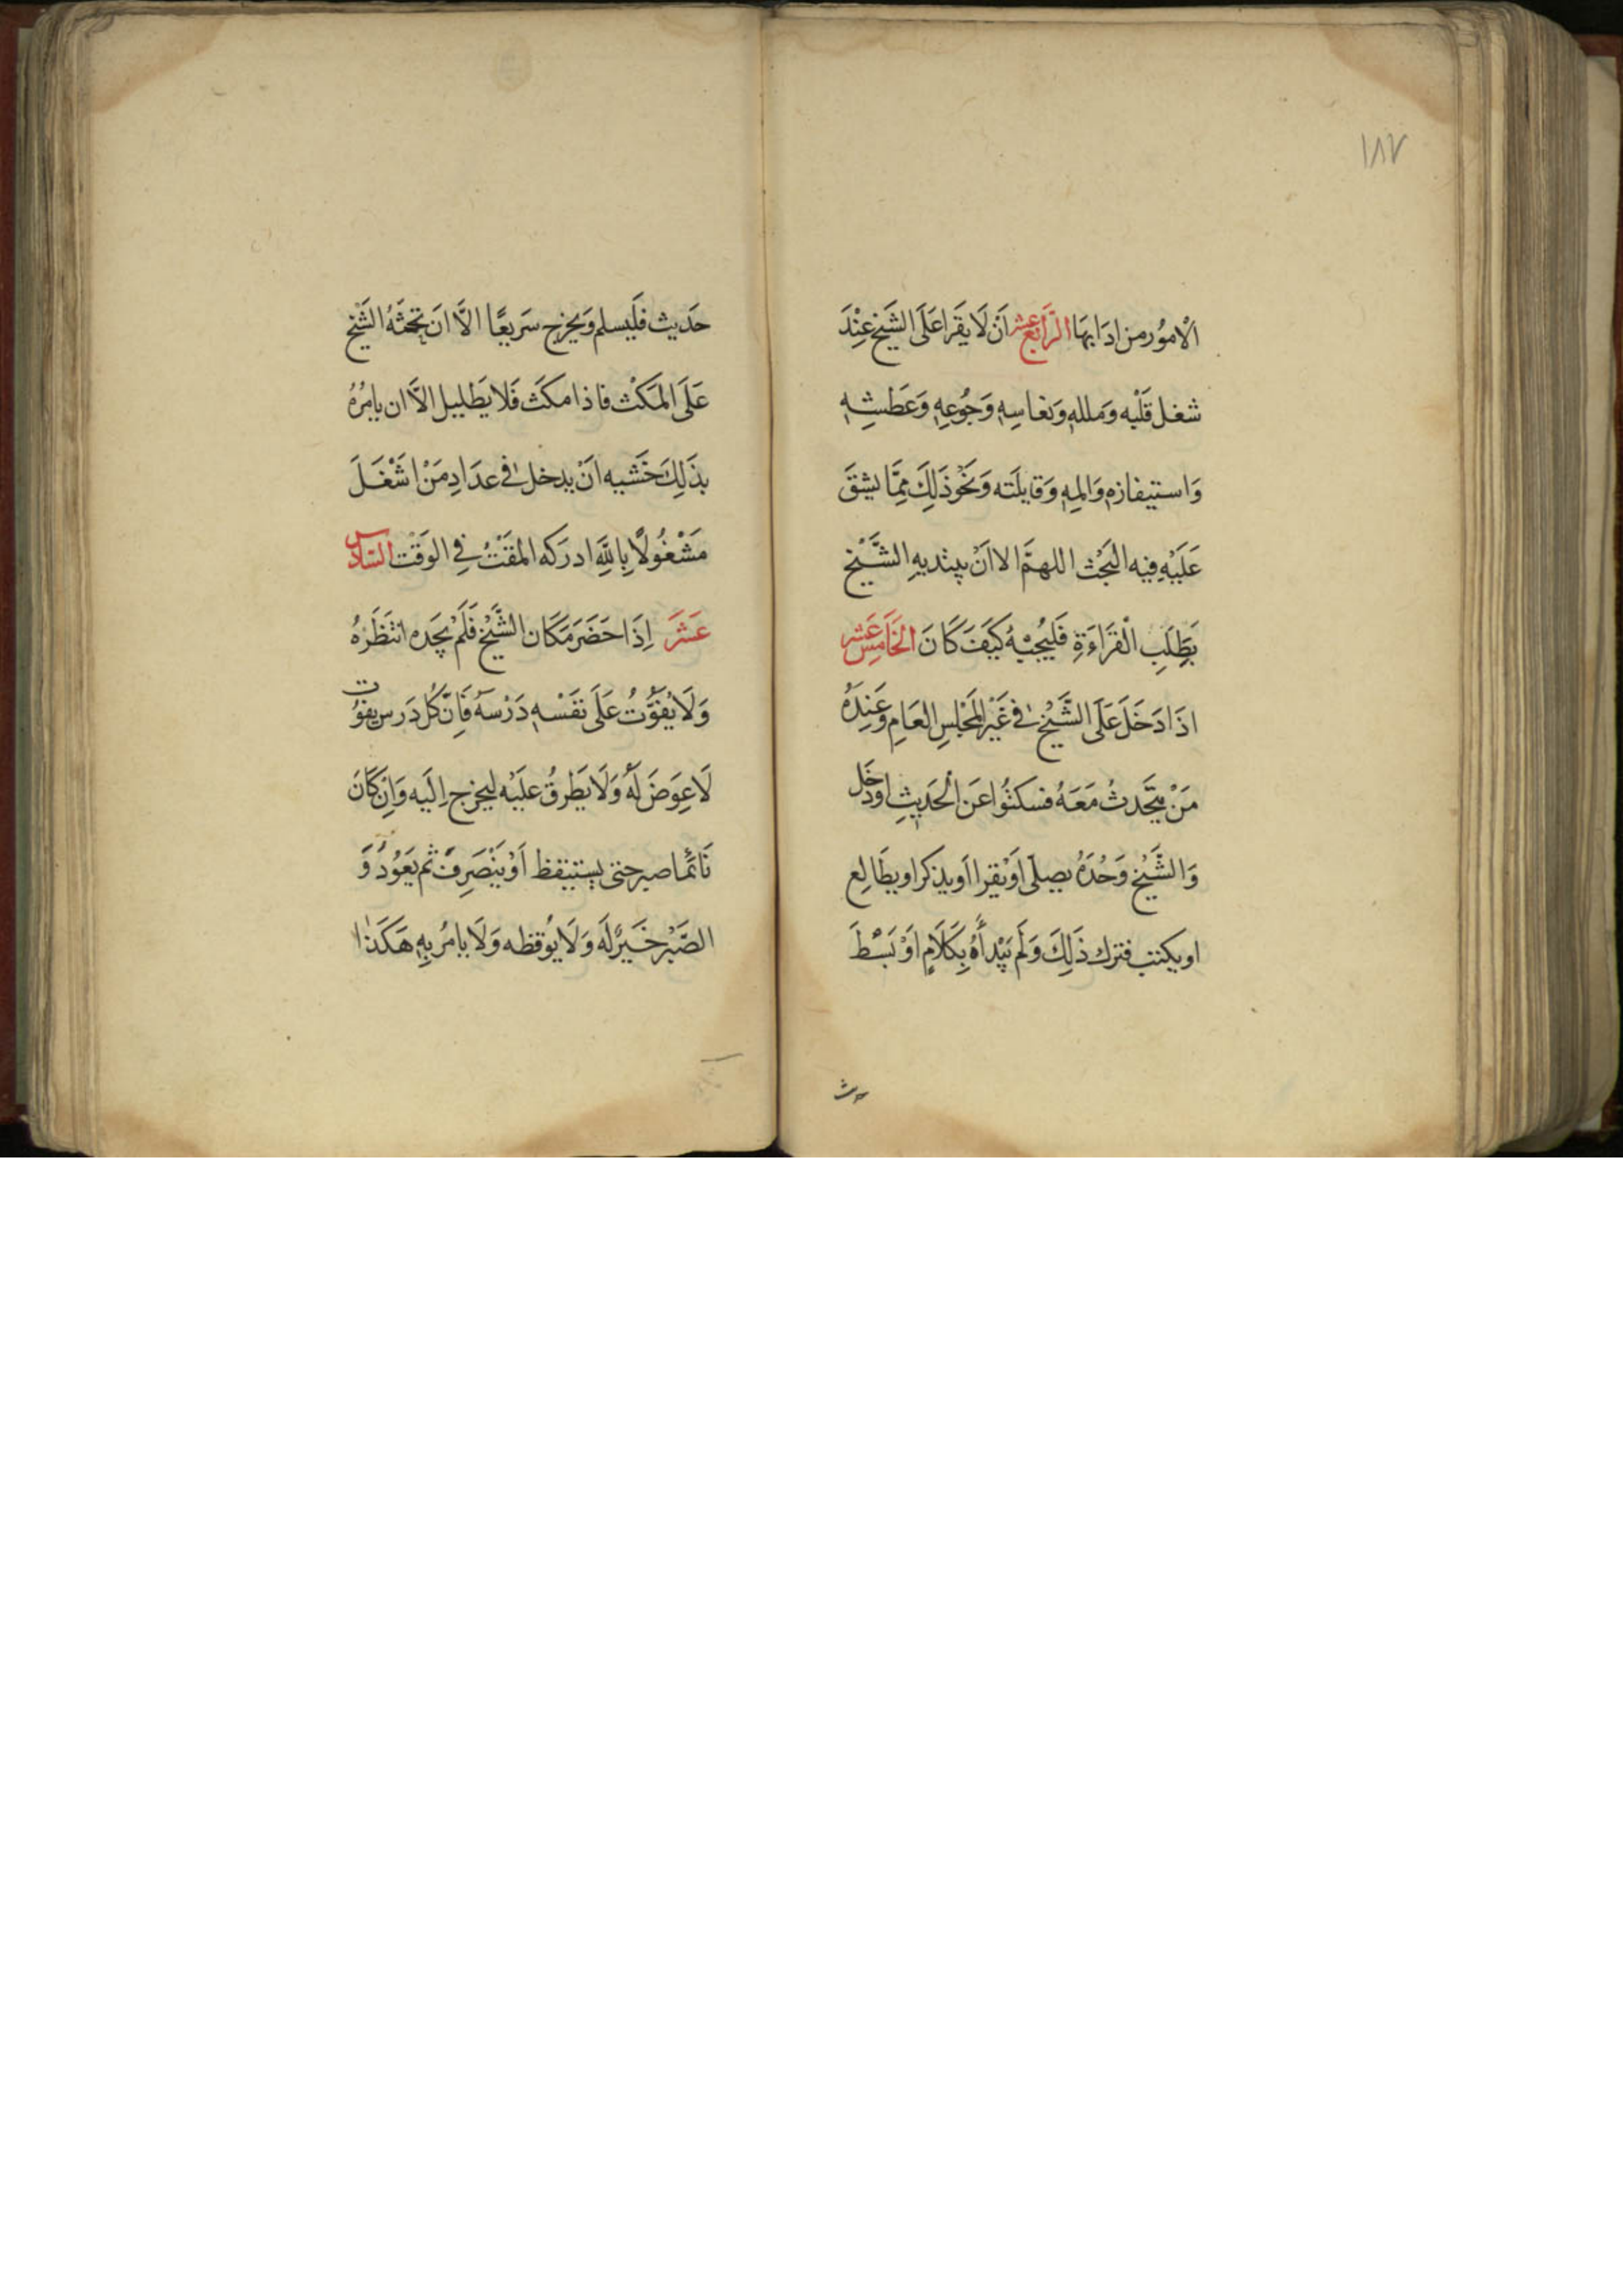 ١٨٧
الْامُور من ادَابِهَا الرَّابع عشر اَنْ لَا يقَرا عَلَى الشَيخ عِنْدَ
شغل قَلْبه وَملله وَنعاسِهِ وَجُوعِهِ وَعَطشِهِ
وَاستيفازه وَالمِهِ وَقايلَته وَنَحْوذَلِكَ مِمَّا يشقَ
عَلَيْهِ فيه البَحْث اللهمَّ الا اَنْ يبتديهِ الشَّيْخ
بَطِلَبِ الْقرَاءَةِ فَليُجبْهُ كَيَفَ كَانَ الخَامِس عَشر
اذَا دَخَلَ عَلَى الشَّيْخ فى غَيْر المَجْلسِ العَامِ وَعَنِدَهُ
مَنْ يتَّحَدثُ مَعَهُ فسكتُوا عَن الْحَدَيثِ اودَخَل
وَالشَّيْخ وَحْدَهُ يصلى اَوْيقرا اَويذكر اويطَالِع
اويكتب فترك ذَلِكَ وَلَم يَبْدأهُ بِكَلَامٍ اَوْ بَسْطَ
حدث
حَدَيث فَلَيسلم وَيخرج سَريعًا الاَّ اَن يَحثَهُ الشَيْخ
عَلَى المَكْث فاذا مكَثَ فَلا يَطليل الاَّ ان يامُرهُ
بذَلِكَ خَشيه اَنْ يدخل فى عدَادِ مَنْ اشَغْلَ
مَشْغُولًا بِاللهِ ادركه المقتُ فِى الوَقْت السَّادس
عَشَرَ اِذَا حَضَرَ مَكَان الشَّيْخ فَلَمْ يَجَده انتَظَرَهُ
وَلَا يُفَوّتُ عَلَى نفَسْهِ دَرْسهُ فَاِنَّ كُل دَرس يفوُت
لَا عِوَضَ لَهُ وَلَا يَطرقُ عليَهْ ليخرج اِلَيه وَاِن كَانَ
نَائمًا صبر حتى يستيقظ اَوْ يَنْصَرِفَ ثم يَعَوُدُ وَ
الصَّبْر خَيرٌ لَه وَلَا يوُقظه وَلَا يامُر بِهِ هَكَذا